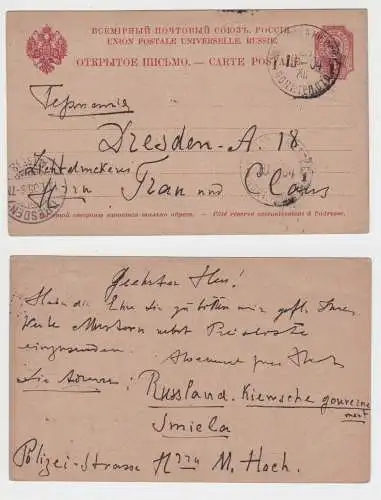 ВСЕМІРНЫЙ ПОЧТОВЫЙ СОЮЗЪ. РОССІЯ.
UNION POSTALE UNIVERSELLE. RUSSIE.
ОТКРЫТОЕ ПИСЬМО. — CARTE POSTALE
Германія
Dresden-A. 18
Lichtdruckerei
Herrn und Claus
Côté réservé exclusivement à l'adresse.
DRESDEN
Geehrter Herr!
Habe die Ehre Sie zu bitten mir gefl. Ihre
Muster nebst Preisliste
einzusenden.
Die Adresse:
Russland. Kiewsche gouverne
ment
Smiela
Polizei-Strasse M. Hoch.